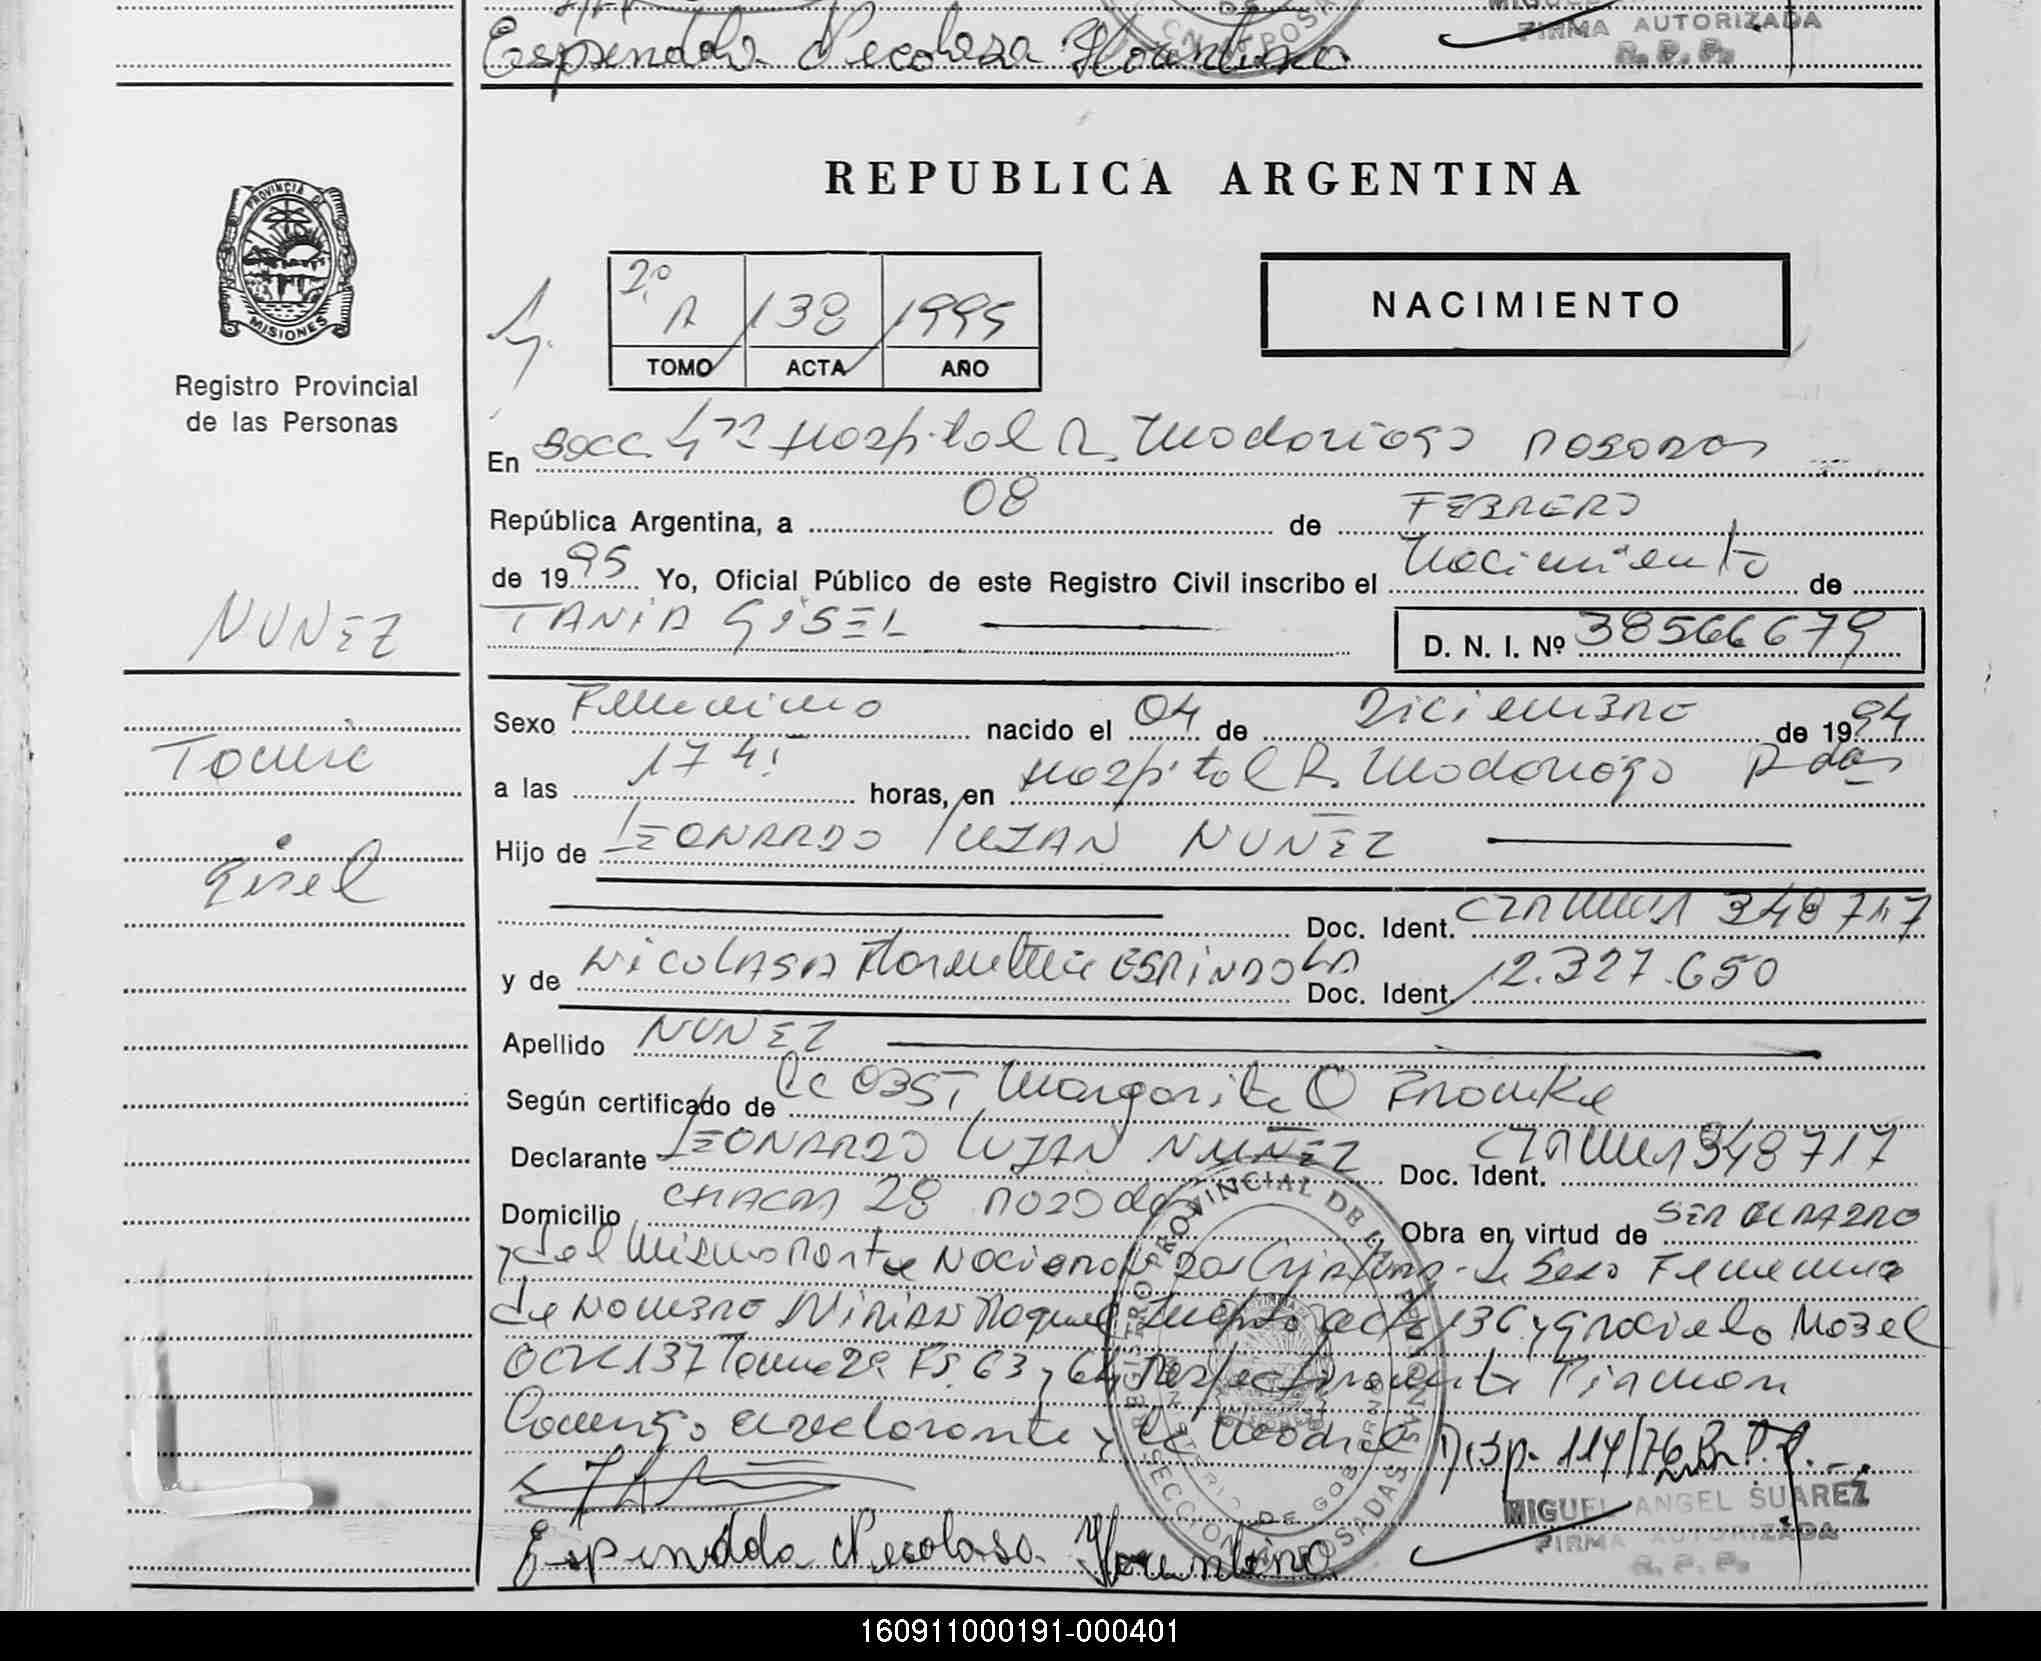 Espindola Nicolasa Florentina
FIRMA AUTORIZADA
R. P. P.
REPUBLICA ARGENTINA
PROVINCIA DE
MISIONES
Registro Provincial
de las Personas
2º
A 138 1995
TOMO ACTA AÑO
NACIMIENTO
En Secc. 4ta Hospital R. Madariaga Posadas
República Argentina, a 08 de FEBRERO
de 1995 Yo, Oficial Público de este Registro Civil inscribo el Nacimiento de
TANIA GISEL
D. N. I. Nº 38566679
NUÑEZ
Tania
Gisel
Sexo Femenino nacido el 04 de Diciembre de 1994
a las 17 41 horas, en Hospital R. Madariaga Pdas
Hijo de LEONARDO LUJAN NUÑEZ
Doc. Ident. 348717
y de NICOLASA Florentina ESPINDOLA Doc. Ident. 12.327.650
Apellido NUÑEZ
Según certificado de la OBST. Margarita O
Declarante LEONARDO LUJAN NUÑEZ Doc. Ident. 348717
Domicilio CHACRA 28 Posadas Obra en virtud de SER EL PADRE
y del mismo parto Nacieron dos de Sexo Femenino
de NOMBRE MIRIAN Raquel acta 136 y Graciela Mabel
acta 137 Tomo 2º Fs. 63 y 64 Respectivamente Firman
Conmigo el declarante y la Madre Disp. 114/76
MIGUEL ANGEL SUAREZ
FIRMA AUTORIZADA
R. P. P.
Espindola Nicolasa Florentina
REGISTRO PROVINCIAL DE LAS PERSONAS
MINISTERIO DE GOBIERNO
SECCION POSADAS
160911000191-000401